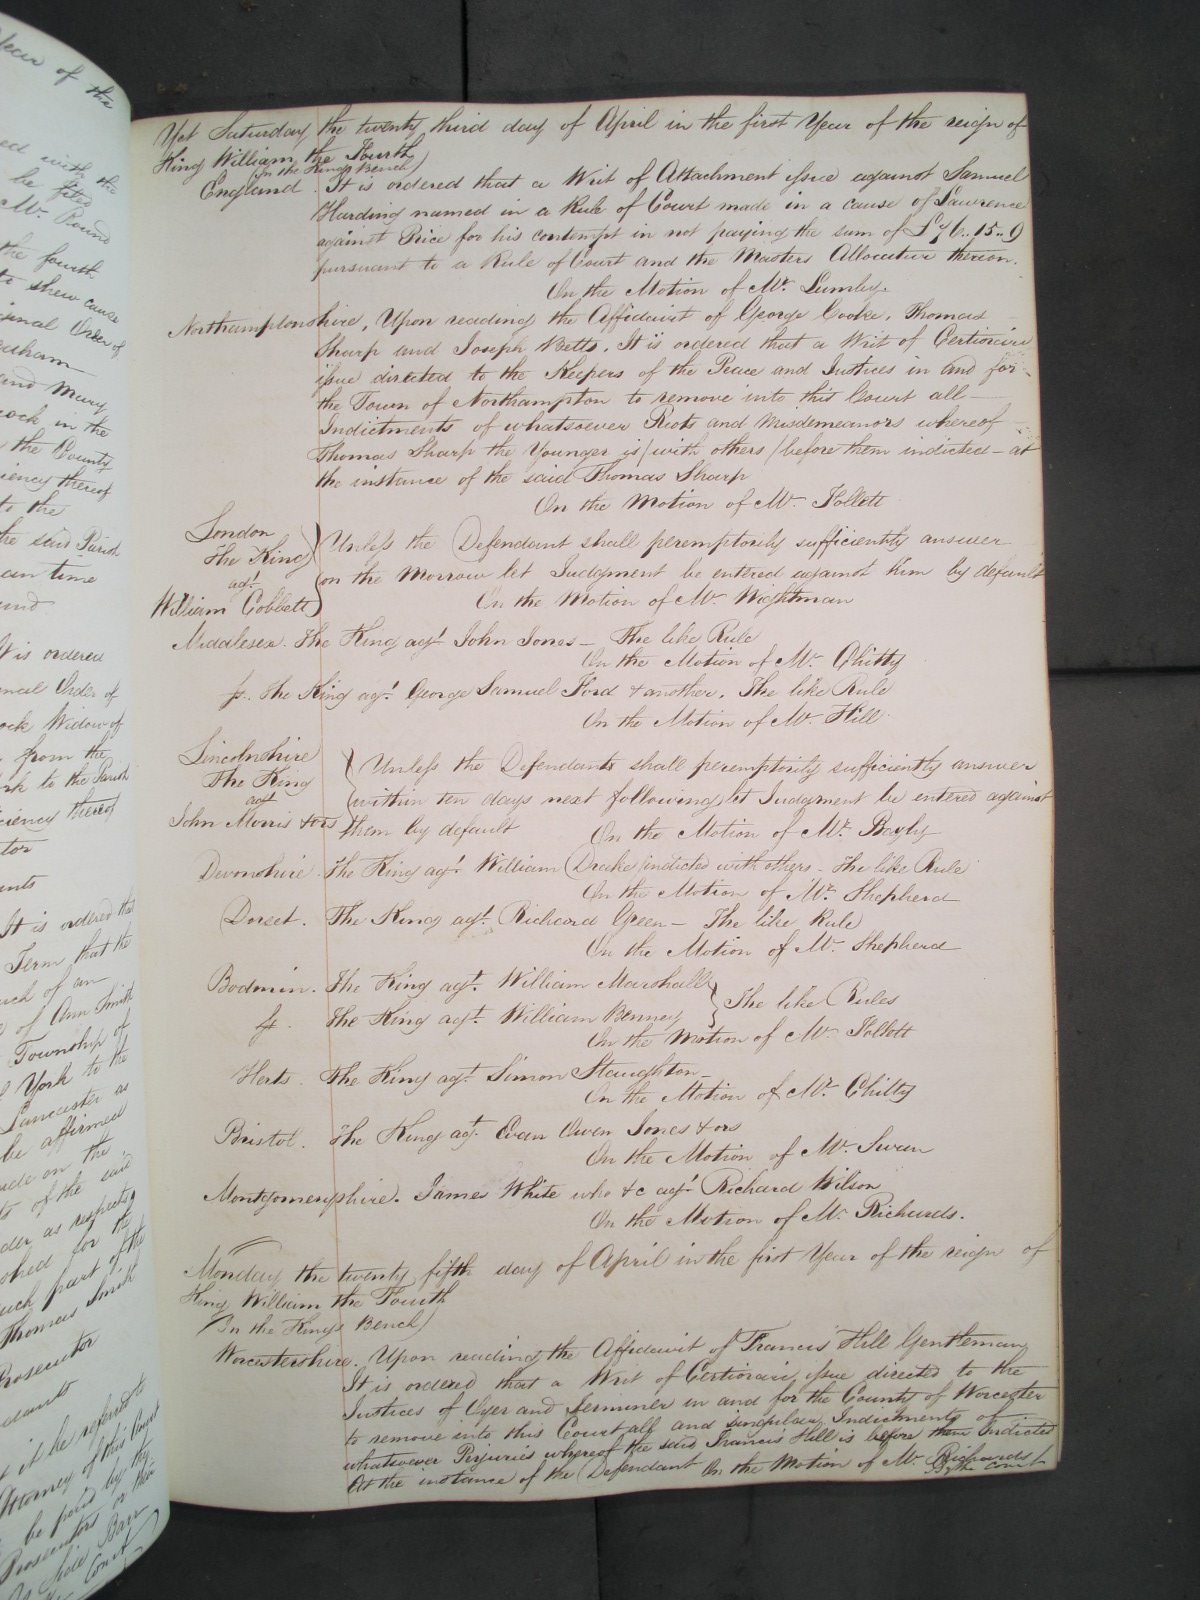 Year of the
ed with the
be filed
Mr. Pound
the fourth
to shew cause
ginal Order of
and Mary
cock in the
the County
ciency thereof
to the
the said Parish
an time
and
It is ordered
inal Order of
ock Widow of
from the
rk to the Parish
ciency thereof
tor
ents
It is ordered that
Term that the
uch of an
of Ann Smith
Township of
York to the
Lancaster as
be affirmed
ade on the
ts of the said
der as respects
shed for the
uch part of the
Thomas Smith
Prosecutor
dants
it be referred to
Attorney of this Court
be paid by the
Prosecutors or their
Side Barr
Court
Yet Saturday the twenty third day of April in the first Year of the reign of
King William the Fourth
(In the Kings Bench)
England. It is ordered that a Writ of Attachment issue against Samuel
Harding named in a Rule of Court made in a cause of Lawrence
against Price for his contempt in not paying the sum of £76..15..9
pursuant to a Rule of Court and the Masters Allocatur thereon.
On the Motion of Mr. Lumley.
Northamptonshire, Upon reading the Affidavit of George Cooke, Thomas
Sharp and Joseph Betts. It is ordered that a Writ of Certiorari
issue directed to the Keepers of the Peace and Justices in and for
the Town of Northampton to remove into this Court all
Indictments of whatsoever Riots and Misdemeanors whereof
Thomas Sharp the Younger is (with others) before them indicted - at
the instance of the said Thomas Sharp
On the Motion of Mr. Follett
London
The King
agt.
William Cobbett
Unless the Defendant shall peremptorily sufficiently answer
on the Morrow let Judgment be entered against him by default
On the Motion of Mr. Wightman
Middlesex. The King agt. John Jones - The like Rule
On the Motion of Mr. Chitty
fs. The King agt. George Samuel Ford & another. The like Rule
On the Motion of Mr. Hill.
Lincolnshire
The King
agt
John Morris & ors
Unless the Defendants shall peremptorily sufficiently answer
within ten days next following let Judgment be entered against
them by default On the Motion of Mr. Bayly
Devonshire. The King agt. William Drake (indicted with others - The like Rule
On the Motion of Mr. Shepherd
Dorset. The King agt. Richard Green - The like Rule
On the Motion of Mr. Shepherd
Bodmin. The King agt. William Marshall
fs. The King agt. William Benney
The like Rules
On the Motion of Mr. Follett
Herts. The King agt. Simon Staughton -
On the Motion of Mr. Chitty
Bristol. The King agt. Evan Owen Jones & ors
On the Motion of Mr. Swan
Montgomeryshire. James White who &c agt. Richard Wilson
On the Motion of Mr. Richards.
Monday the twenty fifth day of April in the first Year of the reign of
King William the Fourth
(In the Kings Bench)
Worcestershire. Upon reading the Affidavit of Francis Hill Gentleman
It is ordered that a Writ of Certiorari issue directed to the
Justices of Oyer and Terminer in and for the County of Worcester
to remove into this Court all and singular Indictments of
whatsoever Perjuries whereof the said Francis Hill is before them indicted
At the instance of the Defendant On the Motion of Mr. Richards
By the Court